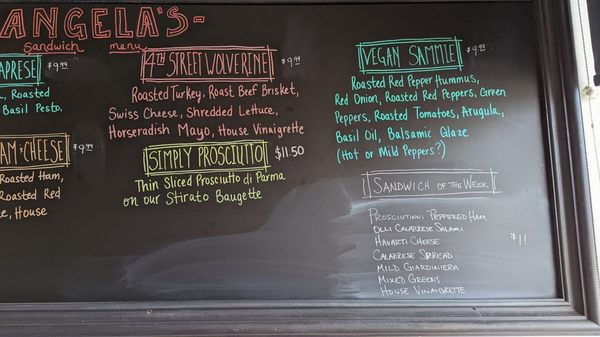 ANGELA'S-
Sandwich menu
APRESE $9.99
Roasted
Basil Pesto.
AM & CHEESE $9.99
Roasted Ham,
Roasted Red
House
4TH STREET WOLVERINE $9.99
Roasted Turkey, Roast Beef Brisket,
Swiss Cheese, Shredded Lettuce,
Horseradish Mayo, House Vinaigrette
SIMPLY PROSCIUTTO $11.50
Thin Sliced Prosciutto di Parma
on our Stirato Baugette
VEGAN SAMMIE $9.99
Roasted Red Pepper Hummus,
Red Onion, Roasted Red Peppers, Green
Peppers, Roasted Tomatoes, Arugula,
Basil Oil, Balsamic Glaze
(Hot or Mild Peppers?)
SANDWICH OF THE WEEK
PROSCIUTINNI PEPPERED HAM
OLLI CALABRESE SALAMI
HAVARTI CHEESE
CALABRESE SPREAD $11
MILD GIARDINIERA
MIXED GREENS
HOUSE VINAIGRETTE